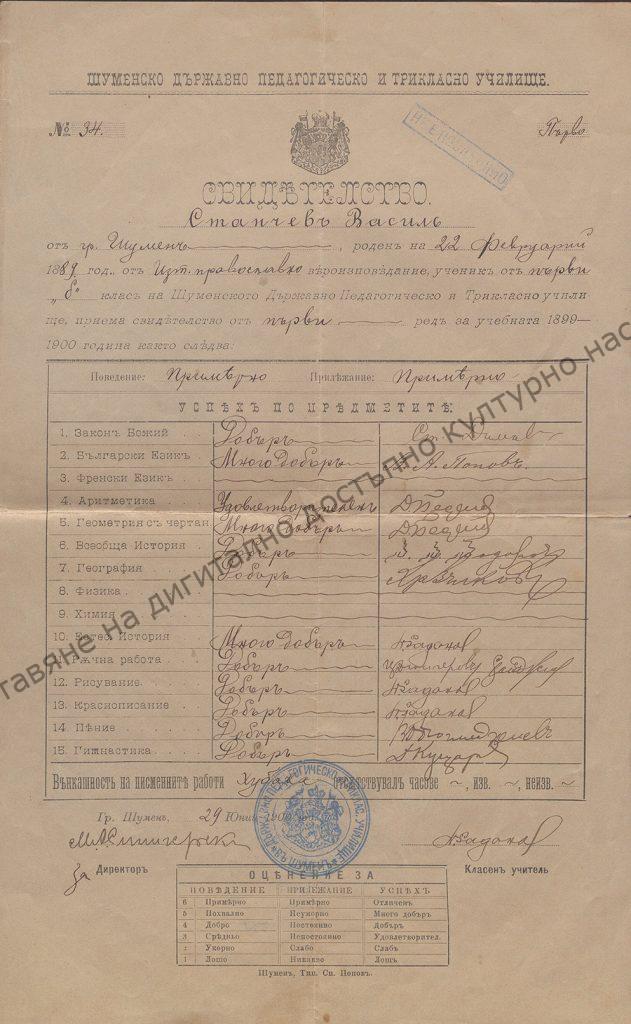 ШУМЕНСКО ДЪРЖАВНО ПЕДАГОГИЧЕСКО И ТРИКЛАСНО УЧИЛИЩЕ.
№ 34. Първо
СВИДѢТЕЛСТВО.
Станчевъ Василь
отъ гр. Шуменъ, роденъ на 22 Февруарий
1889 год., отъ Изт. православно вѣроизповѣдание, ученикъ отъ първи
„б" класъ на Шуменското Държавно Педагогическо и Трикласно учили-
ще, приема свидѣтелство отъ първи редъ за учебната 1899—
1900 година както слѣдва:
Поведение: Примѣрно Прилѣжание: Примѣрно
УСПѢХЪ ПО ПРѢДМЕТИТѢ:
1. Законъ Божий Добъръ
2. Български Езикъ Много добъръ А. Поповъ.
3. Френски Езикъ
4. Аритметика Удовлетворителенъ
5. Геометрия съ чертан. Много добъръ
6. Всеобща История Добъръ
7. География Добъръ
8. Физика
9. Химия
10. Естес. История Много добъръ
Рѫчна работа Добъръ
12. Рисувание Добъръ
13. Краснописание Добъръ
14. Пѣние Добъръ
15. Гимнастика Добъръ
Вънкашность на писменнитѣ работи хубава отсѫтствувалъ часове ~ изв. ~, неизв. ~
Гр. Шуменъ, 29 Юний 1900
За Директоръ Класенъ учитель
ОЦѢНЕНИЕ ЗА
ПОВЕДЕНИЕ ПРИЛѢЖАНИЕ УСПѢХЪ
6 Примѣрно Примѣрно Отличенъ
5 Похвално Неуморно Много добъръ
4 Добро Постоянно Добъръ
3 Срѣдньо Непостоянно Удовлетворител.
2 Укорно Слабо Слабъ
1 Лошо Никакво Лошъ
Шуменъ, Тип. Сп. Поповъ.
тавяне на дигитално достъпно културно нас